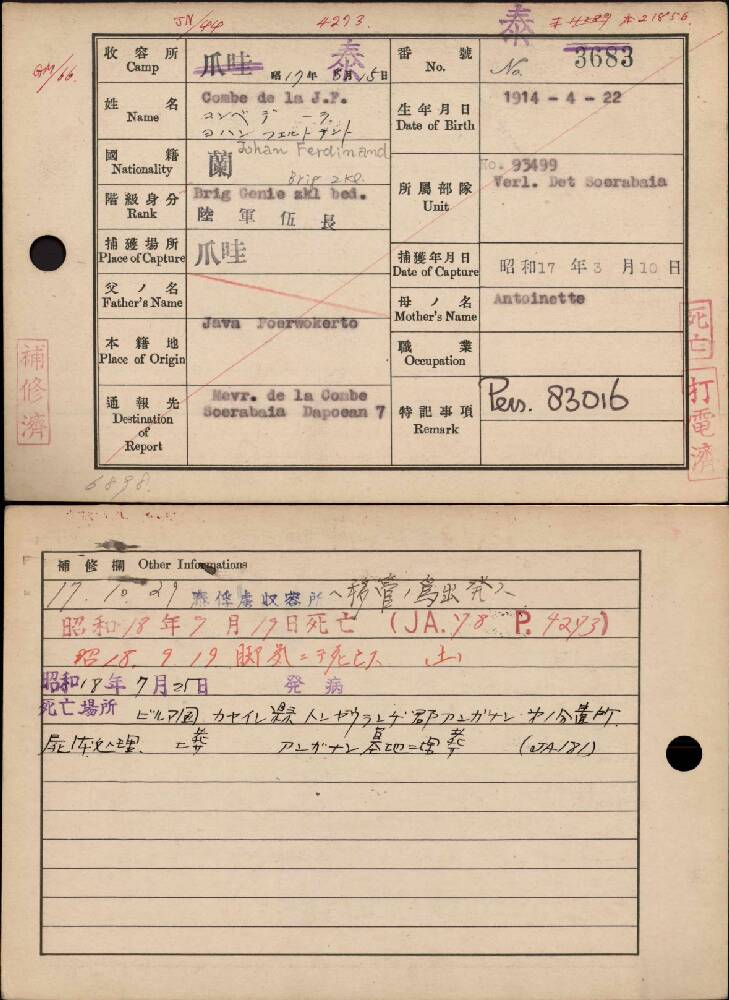 JN/44 4273. 泰 本4289 本21856
GM/66
收容所 Camp 爪哇 昭17年8月15日 泰
番號 No. No. 3683
姓名 Name Combe de la J.F.
コンベ デ ーラ
ヨハン フェルドナント
Johan Ferdinand
生年月日 Date of Birth 1914 - 4 - 22
國籍 Nationality 蘭
Brig 2kl.
所屬部隊 Unit No. 93499
Verl. Det Soerabaia
階級身分 Rank Brig Genie zkl bed.
陸軍伍長
捕獲場所 Place of Capture 爪哇
捕獲年月日 Date of Capture 昭和17年3月10日
父ノ名 Father's Name
母ノ名 Mother's Name Antoinette
本籍地 Place of Origin Java Poerwokerto
職業 Occupation
通報先 Destination of Report Mevr. de la Combe
Soerabaia Dapoean 7
特記事項 Remark Pers. 83016
補修濟
死亡
打電濟
6898.
補修欄 Other Informations
17. 10. 29 泰俘虜収容所ヘ移管ノ為出発ス
昭和18年9月19日死亡 (JA.78 P. 4273)
昭18. 9 19 脚気ニテ死亡ス
昭和18年7月25日 発病
死亡場所 ビルマ国 カヤイン県 アンガナン
屍体処理 アンガナン墓地ニ埋葬 (JA181)